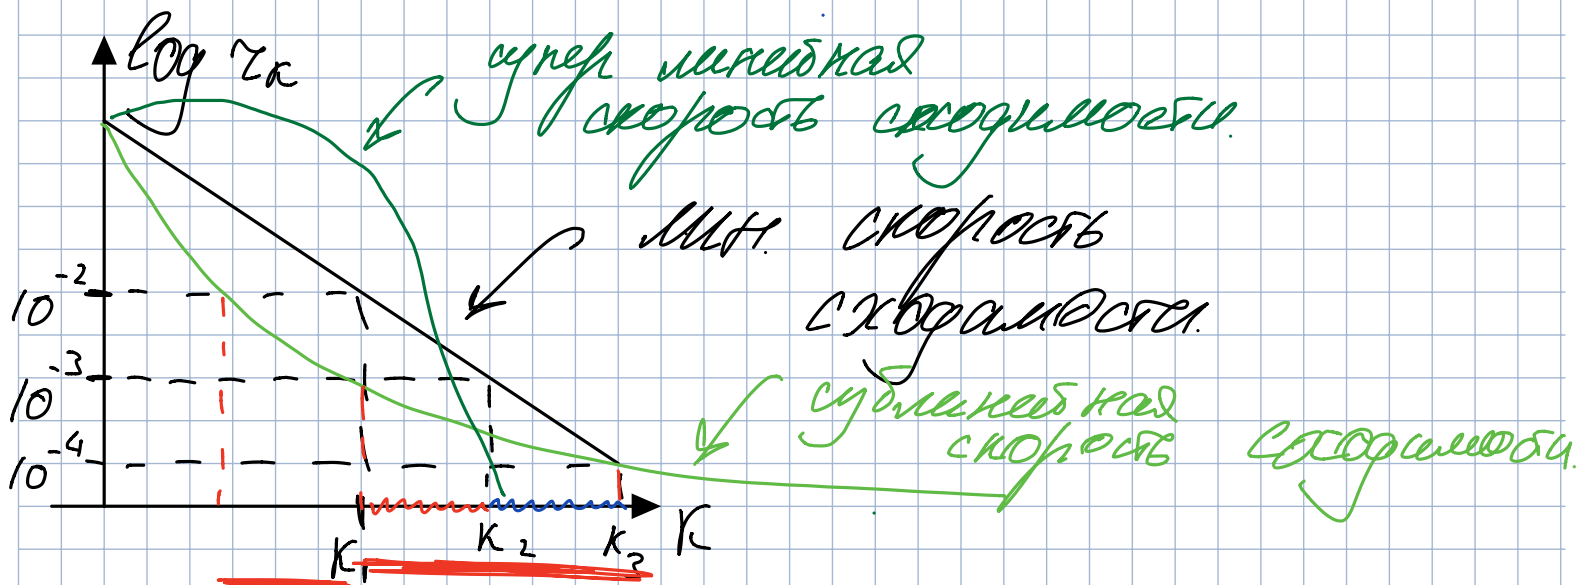 log r_k
супер линейная
скорость сходимости.
лин. скорость
сходимости.
10^-2
10^-3
сублинейная
скорость сходимости.
10^-4
K_1 K_2 K_3 K